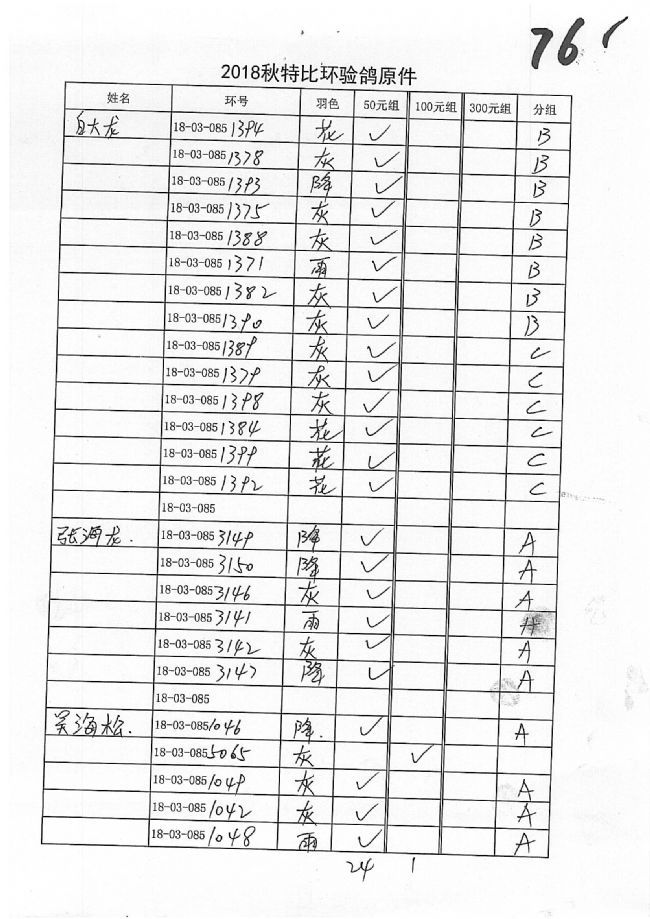 76
2018秋特比环验鸽原件
姓名 环号 羽色 50元组 100元组 300元组 分组
白大龙 18-03-085 1394 花 ✓ B
18-03-085 1378 灰 ✓ B
18-03-085 1393 降 ✓ B
18-03-085 1375 灰 ✓ B
18-03-085 1388 灰 ✓ B
18-03-085 1371 雨 ✓ B
18-03-085 1382 灰 ✓ B
18-03-085 1390 灰 ✓ B
18-03-085 1389 灰 ✓ C
18-03-085 1379 灰 ✓ C
18-03-085 1398 灰 ✓ C
18-03-085 1384 花 ✓ C
18-03-085 1399 花 ✓ C
18-03-085 1392 花 ✓ C
18-03-085
张海龙. 18-03-085 3149 降 ✓ A
18-03-085 3150 降 ✓ A
18-03-085 3146 灰 ✓ A
18-03-085 3141 雨 ✓ A
18-03-085 3142 灰 ✓ A
18-03-085 3147 降 ✓ A
18-03-085
吴海松. 18-03-085 1046 降. ✓ A
18-03-085 5065 灰 ✓
18-03-085 1049 灰 ✓ A
18-03-085 1042 灰 ✓ A
18-03-085 1048 雨 ✓ A
24 1